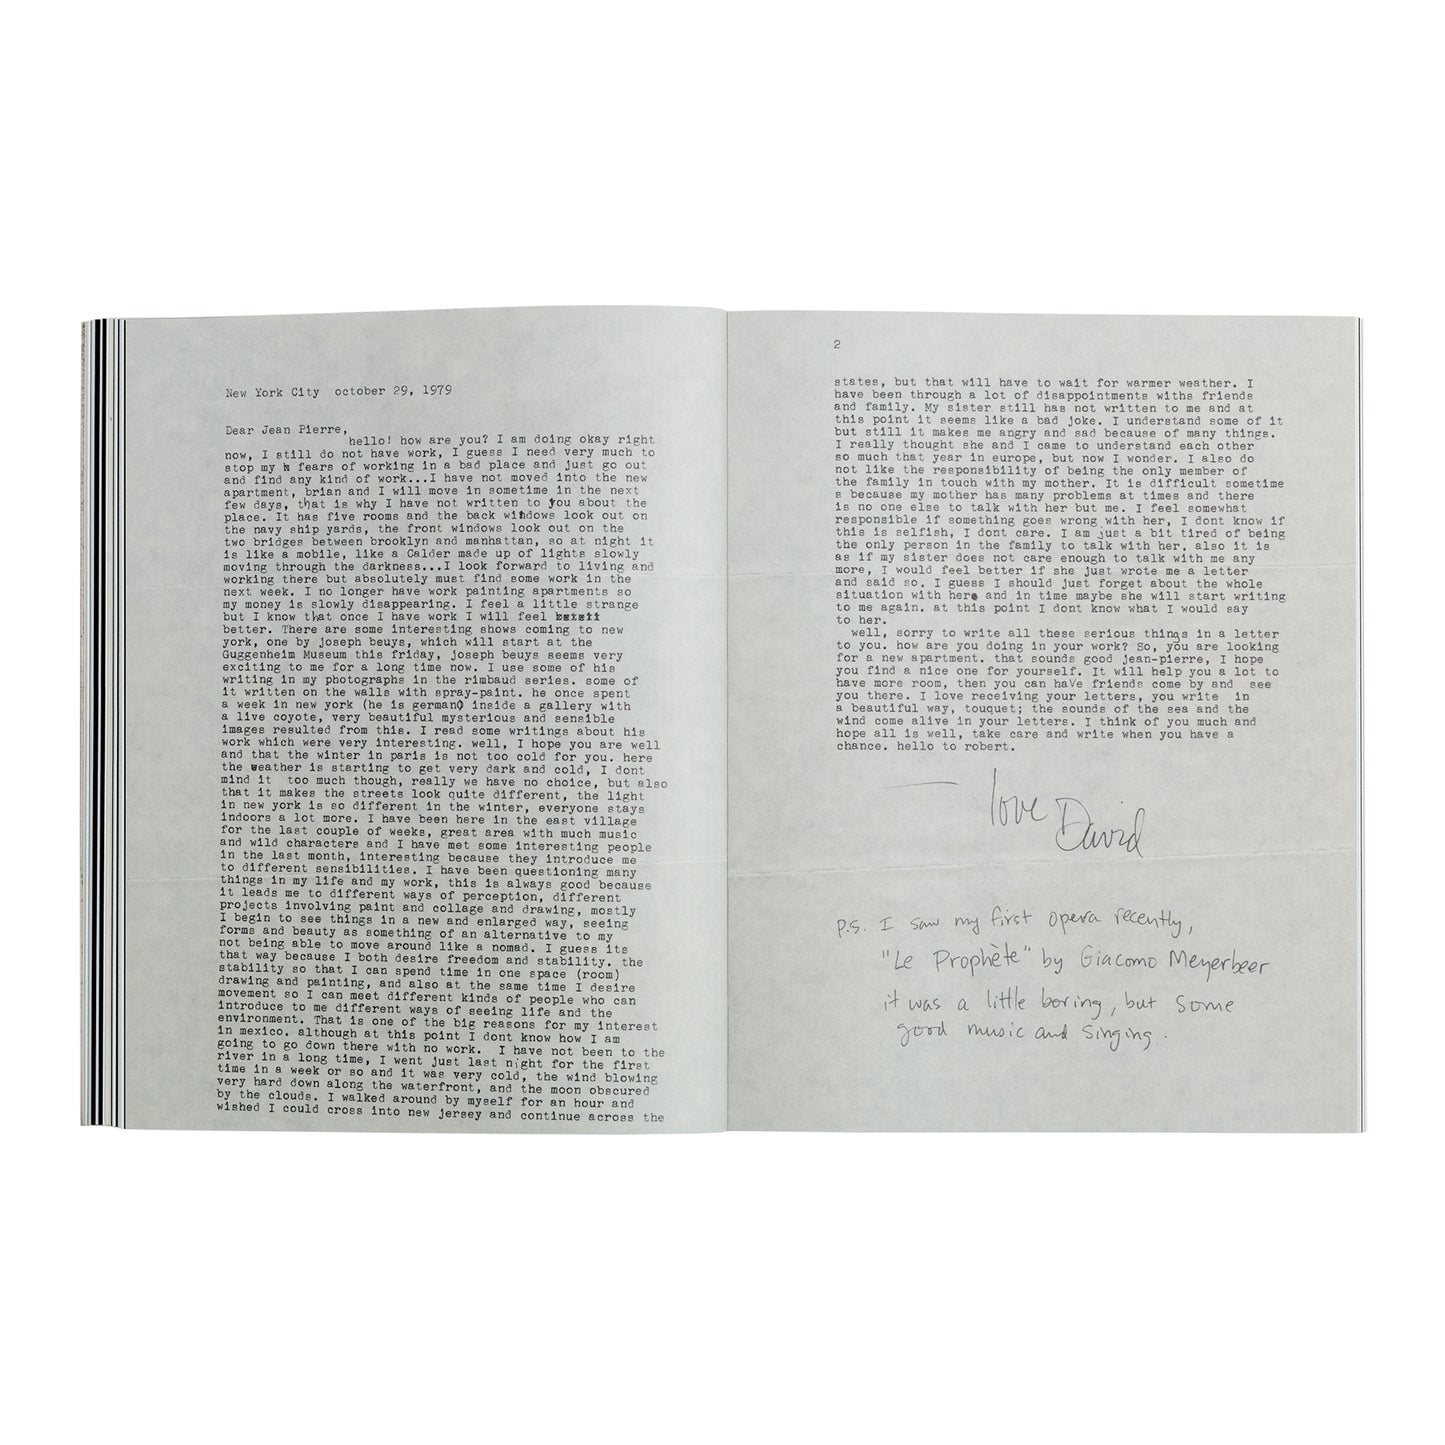 New York City  october 29, 1979
Dear Jean Pierre,
hello! how are you? I am doing okay right
now, I still do not have work, I guess I need very much to
stop my fears of working in a bad place and just go out
and find any kind of work...I have not moved into the new
apartment, brian and I will move in sometime in the next
few days, that is why I have not written to you about the
place. It has five rooms and the back windows look out on
the navy ship yards, the front windows look out on the
two bridges between brooklyn and manhattan, so at night it
is like a mobile, like a Calder made up of lights slowly
moving through the darkness...I look forward to living and
working there but absolutely must find some work in the
next week. I no longer have work painting apartments so
my money is slowly disappearing. I feel a little strange
but I know that once I have work I will feel
better. There are some interesting shows coming to new
york, one by joseph beuys, which will start at the
Guggenheim Museum this friday, joseph beuys seems very
exciting to me for a long time now. I use some of his
writing in my photographs in the rimbaud series. some of
it written on the walls with spray-paint. he once spent
a week in new york (he is german) inside a gallery with
a live coyote, very beautiful mysterious and sensible
images resulted from this. I read some writings about his
work which were very interesting. well, I hope you are well
and that the winter in paris is not too cold for you. here
the weather is starting to get very dark and cold, I dont
mind it  too much though, really we have no choice, but also
that it makes the streets look quite different, the light
in new york is so different in the winter, everyone stays
indoors a lot more. I have been here in the east village
for the last couple of weeks, great area with much music
and wild characters and I have met some interesting people
in the last month, interesting because they introduce me
to different sensibilities. I have been questioning many
things in my life and my work, this is always good because
it leads me to different ways of perception, different
projects involving paint and collage and drawing, mostly
I begin to see things in a new and enlarged way, seeing
forms and beauty as something of an alternative to my
not being able to move around like a nomad. I guess its
that way because I both desire freedom and stability. the
stability so that I can spend time in one space (room)
drawing and painting, and also at the same time I desire
movement so I can meet different kinds of people who can
introduce to me different ways of seeing life and the
environment. That is one of the big reasons for my interest
in mexico. although at this point I dont know how I am
going to go down there with no work.  I have not been to the
river in a long time, I went just last night for the first
time in a week or so and it was very cold, the wind blowing
very hard down along the waterfront, and the moon obscured
by the clouds. I walked around by myself for an hour and
wished I could cross into new jersey and continue across the
2
states, but that will have to wait for warmer weather. I
have been through a lot of disappointments withs friends
and family. My sister still has not written to me and at
this point it seems like a bad joke. I understand some of it
but still it makes me angry and sad because of many things.
I really thought she and I came to understand each other
so much that year in europe, but now I wonder. I also do
not like the responsibility of being the only member of
the family in touch with my mother. It is difficult sometime
s because my mother has many problems at times and there
is no one else to talk with her but me. I feel somewhat
responsible if something goes wrong with her, I dont know if
this is selfish, I dont care. I am just a bit tired of being
the only person in the family to talk with her. also it is
as if my sister does not care enough to talk with me any
more, I would feel better if she just wrote me a letter
and said so. I guess I should just forget about the whole
situation with here and in time maybe she will start writing
to me again. at this point I dont know what I would say
to her.
well, sorry to write all these serious things in a letter
to you. how are you doing in your work? So, you are looking
for a new apartment. that sounds good jean-pierre, I hope
you find a nice one for yourself. It will help you a lot to
have more room, then you can have friends come by and  see
you there. I love receiving your letters, you write  in
a beautiful way, touquet; the sounds of the sea and the
wind come alive in your letters. I think of you much and
hope all is well, take care and write when you have a
chance. hello to robert.
— love David
p.s. I saw my first opera recently,
"Le Prophète" by Giacomo Meyerbeer
it was a little boring, but some
good music and singing.